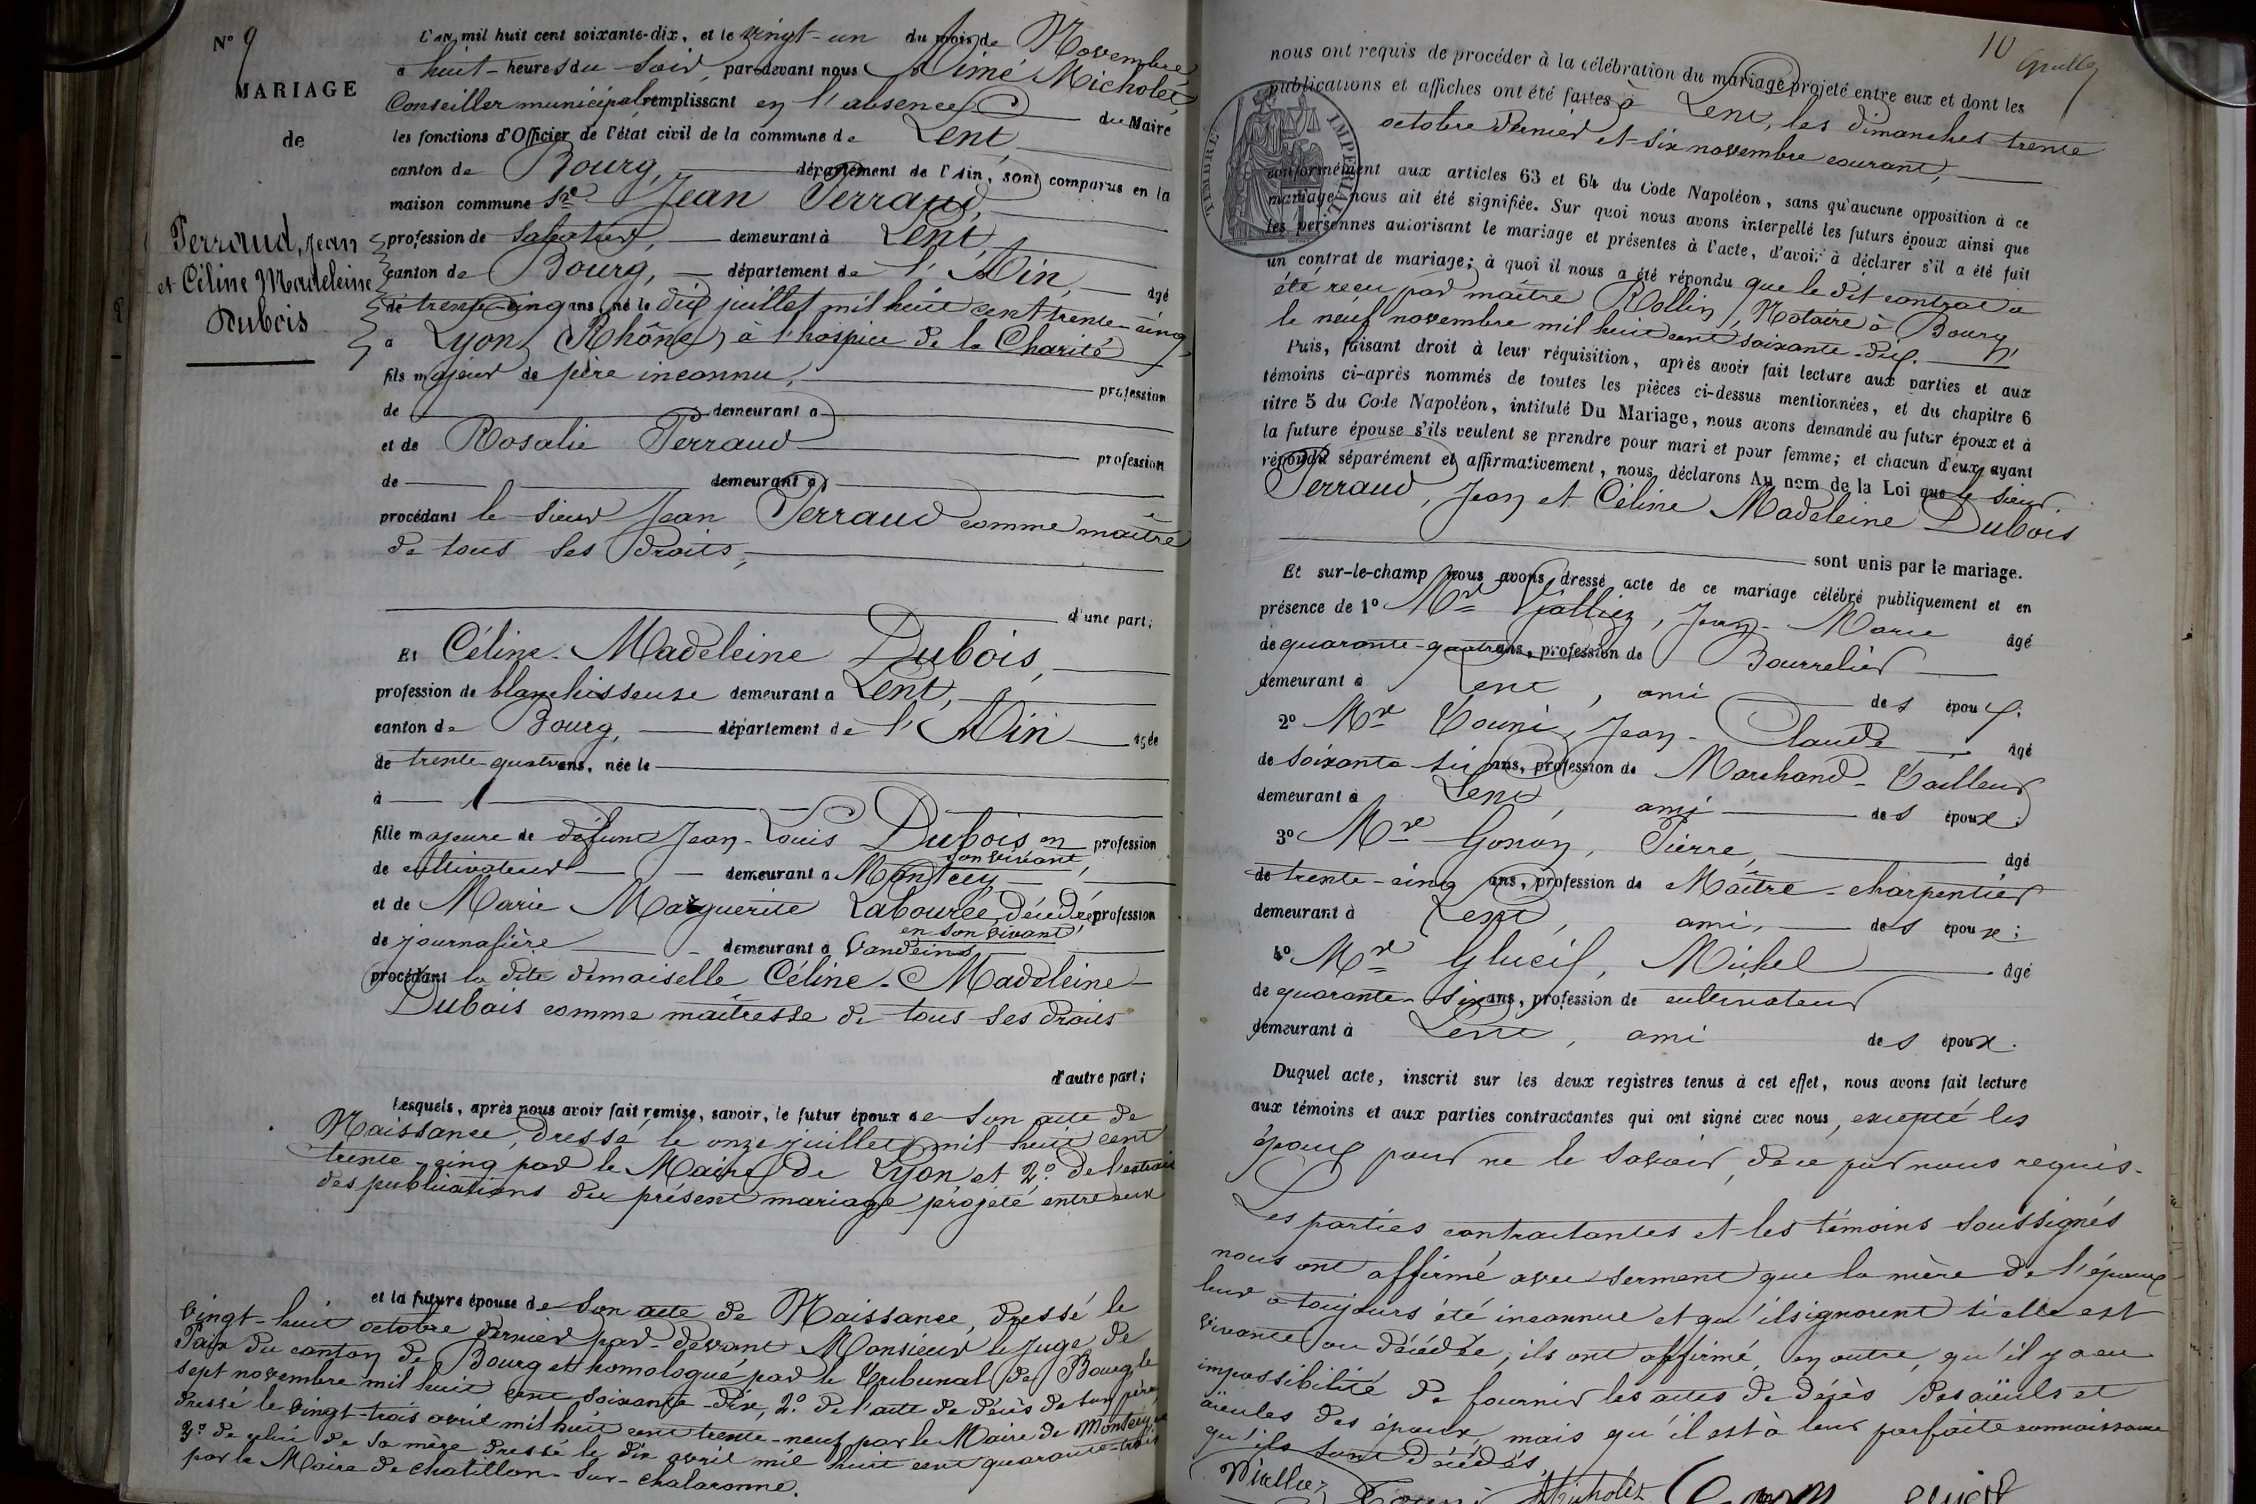 N° 9
MARIAGE
de
Perraud, Jean
et Céline Madeleine
Dubois
L'AN mil huit cent soixante-dix, et le vingt-un du mois de Novembre
à huit heures du soir, par-devant nous Aimé Micholet,
Conseiller municipal remplissant en l'absence du Maire
les fonctions d'Officier de l'état civil de la commune de Lent,
canton de Bourg, département de l'Ain, sont comparus en la
maison commune Sr Jean Perraud,
profession de sabotier, demeurant à Lent,
canton de Bourg, département de l'Ain, âgé
de trente-cinq ans, né le dix juillet mil huit cent trente-cinq,
à Lyon, (Rhône) à l'hospice de la Charité
fils majeur de père inconnu, profession
de demeurant à
et de Rosalie Perraud profession
de demeurant à
procédant le sieur Jean Perraud comme maître
de tous ses droits,
d'une part;
Et Céline-Madeleine Dubois,
profession de blanchisseuse demeurant à Lent,
canton de Bourg, département de l'Ain âgée
de trente-quatre ans, née le
à
fille majeure de défunt Jean-Louis Dubois en profession
son vivant,
de cultivateur demeurant à Montcey,
et de Marie Marguerite Labourée, décédée, profession
en son vivant,
de journalière demeurant à Vandeins
procédant la dite demoiselle Céline-Madeleine
Dubois comme maîtresse de tous ses droits
d'autre part;
Lesquels, après nous avoir fait remise, savoir, le futur époux de son acte de
Naissance, dressé le onze juillet mil huit cent
trente-cinq par le Maire de Lyon et 2° de l'extrait
des publications du présent mariage projeté entre eux
et la future épouse de son acte de Naissance, dressé le
vingt-huit octobre dernier par-devant Monsieur le Juge de
Paix du canton de Bourg et homologué par le Tribunal de Bourg le
sept novembre mil huit cent soixante-dix, 2° de l'acte de décès de son père,
dressé le vingt-trois avril mil huit cent trente-neuf par le Maire de Montcey,
3° de celui de sa mère dressé le dix avril mil huit cent quarante-trois
par le Maire de Chatillon-sur-Chalaronne.
10
nous ont requis de procéder à la célébration du mariage projeté entre eux et dont les
publications et affiches ont été faites à Lent, les dimanches trente
octobre dernier et six novembre courant,
TIMBRE IMPERIAL
conformément aux articles 63 et 64 du Code Napoléon, sans qu'aucune opposition à ce
mariage nous ait été signifiée. Sur quoi nous avons interpellé les futurs époux ainsi que
les personnes autorisant le mariage et présentes à l'acte, d'avoir à déclarer s'il a été fait
un contrat de mariage; à quoi il nous a été répondu que le dit contrat a
été reçu par maître Rollin, Notaire à Bourg,
le neuf novembre mil huit cent soixante-dix.
Puis, faisant droit à leur réquisition, après avoir fait lecture aux parties et aux
témoins ci-après nommés de toutes les pièces ci-dessus mentionnées, et du chapitre 6
titre 5 du Code Napoléon, intitulé Du Mariage, nous avons demandé au futur époux et à
la future épouse s'ils veulent se prendre pour mari et pour femme; et chacun d'eux ayant
répondu séparément et affirmativement, nous déclarons Au nom de la Loi que le sieur
Perraud, Jean et Céline Madeleine Dubois
sont unis par le mariage.
Et sur-le-champ nous avons dressé acte de ce mariage célébré publiquement et en
présence de 1° Mr Vialliez, Jean-Marie âgé
de quarante-quatre ans, profession de Bourrelier
demeurant à Lent, ami des époux.
2° Mr Touni, Jean-Claude âgé
de soixante-six ans, profession de Marchand-Tailleur
demeurant à Lent, ami des époux.
3° Mr Gonon, Pierre, âgé
de trente-cinq ans, profession de Maître-charpentier
demeurant à Lent, ami, des époux;
4° Mr Michel âgé
de quarante-six ans, profession de cultivateur
demeurant à Lent, ami des époux.
Duquel acte, inscrit sur les deux registres tenus à cet effet, nous avons fait lecture
aux témoins et aux parties contractantes qui ont signé avec nous, excepté les
époux pour ne le savoir, de ce par nous requis.
Les parties contractantes et les témoins soussignés
nous ont affirmé avec serment que la mère de l'époux
leur a toujours été inconnue et qu'ils ignorent si elle est
vivante ou décédée; ils ont affirmé, en outre, qu'il y a eu
impossibilité de fournir les actes de décès des aïeuls et
aïeules des époux, mais qu'il est à leur parfaite connaissance
qu'ils sont décédés.
Vialliez Touni Micholet Gonon